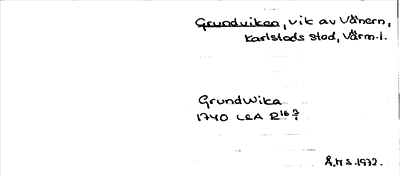 Grundviken, vik av Vänern,
Karlstads stad, Värml.
GrundWika
1740 LSA R16 7/1
Å, H S. 1972.